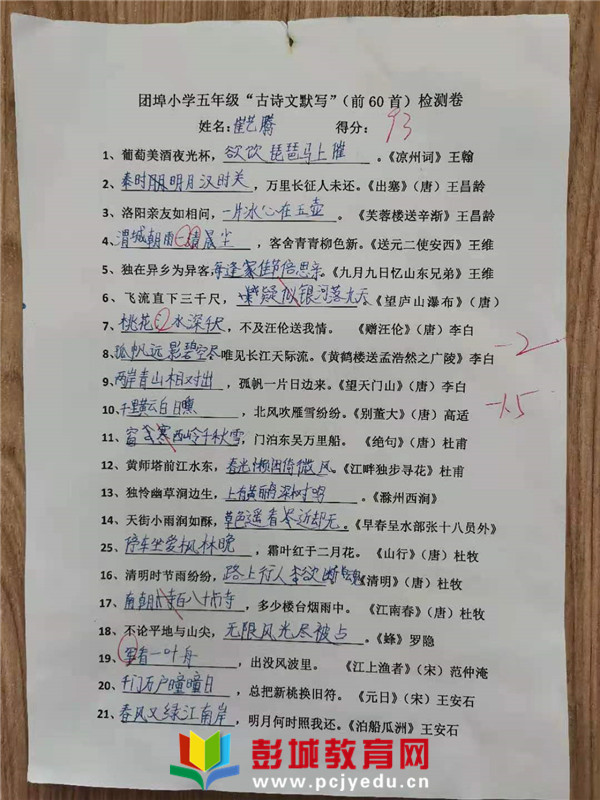 团埠小学五年级“古诗文默写”(前60首)检测卷
姓名:崔艺腾 得分: 93
1、葡萄美酒夜光杯,欲饮琵琶马上催。《凉州词》王翰
2、秦时明月汉时关,万里长征人未还。《出塞》(唐)王昌龄
3、洛阳亲友如相问,一片冰心在玉壶。《芙蓉楼送辛渐》王昌龄
4、渭城朝雨晨尘,客舍青青柳色新。《送元二使安西》王维
5、独在异乡为异客,每逢家佳节倍思亲。《九月九日忆山东兄弟》王维
6、飞流直下三千尺,疑似银河落九天《望庐山瀑布》(唐)
7、桃花水深伏,不及汪伦送我情。《赠汪伦》李白
8、孤帆远影碧空尽唯见长江天际流。《黄鹤楼送孟浩然之广陵》李白 -2
9、两岸青山相对出,孤帆一片日边来。《望天门山》李白
10、千里黄云白日曛,北风吹雁雪纷纷。《别董大》(唐)高适 -1.5
11、窗含寒西岭千秋雪,门泊东吴万里船。《绝句》杜甫
12、黄师塔前江水东,春光懒困倚微风。《江畔独步寻花》杜甫
13、独怜幽草涧边生,上有黄鹂深树鸣。《滁州西涧》
14、天街小雨润如酥,草色遥看近却无。《早春呈水部张十八员外》
25、停车坐爱枫林晚,霜叶红于二月花。《山行》(唐)杜牧
16、清明时节雨纷纷,路上行人欲断魂《清明》(唐)杜牧
17、南朝百八十寺,多少楼台烟雨中。《江南春》(唐)杜牧
18、不论平地与山尖,无限风光尽被占。《蜂》罗隐
19、看一叶舟,出没风波里。《江上渔者》(宋)范仲淹
20、千门万户曈曈日,总把新桃换旧符。《元日》(宋)王安石
21、春风又绿江南岸,明月何时照我还。《泊船瓜洲》王安石
彭城教育网
www.pcjyedu.cn